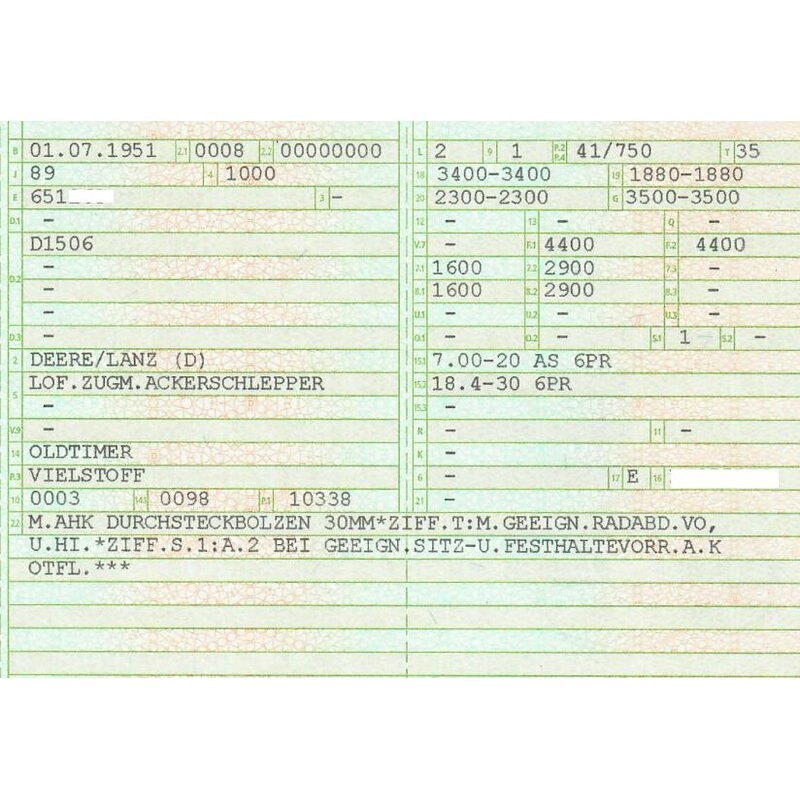 B 01.07.1951 2.1 0008 2.2 00000000
J 89 4 1000
E 651 3 -
D.1 -
D1506
-
D.2 -
-
D.3 -
2 DEERE/LANZ (D)
5 LOF.ZUGM.ACKERSCHLEPPER
-
V.9 -
14 OLDTIMER
P.3 VIELSTOFF
10 0003 14.1 0098 P.1 10338
L 2 9 1 P.2 P.4 41/750 T 35
18 3400-3400 19 1880-1880
20 2300-2300 G 3500-3500
12 - 13 - Q -
V.7 - F.1 4400 F.2 4400
7.1 1600 7.2 2900 7.3 -
8.1 1600 8.2 2900 8.3 -
U.1 - U.2 - U.3 -
O.1 - O.2 - S.1 1 S.2 -
15.1 7.00-20 AS 6PR
15.2 18.4-30 6PR
15.3 -
R - 11 -
K -
6 - 17 E 16
21 -
22 M.AHK DURCHSTECKBOLZEN 30MM*ZIFF.T:M.GEEIGN.RADABD.VO,
U.HI.*ZIFF.S.1:A.2 BEI GEEIGN.SITZ-U.FESTHALTEVORR.A.K
OTFL.***